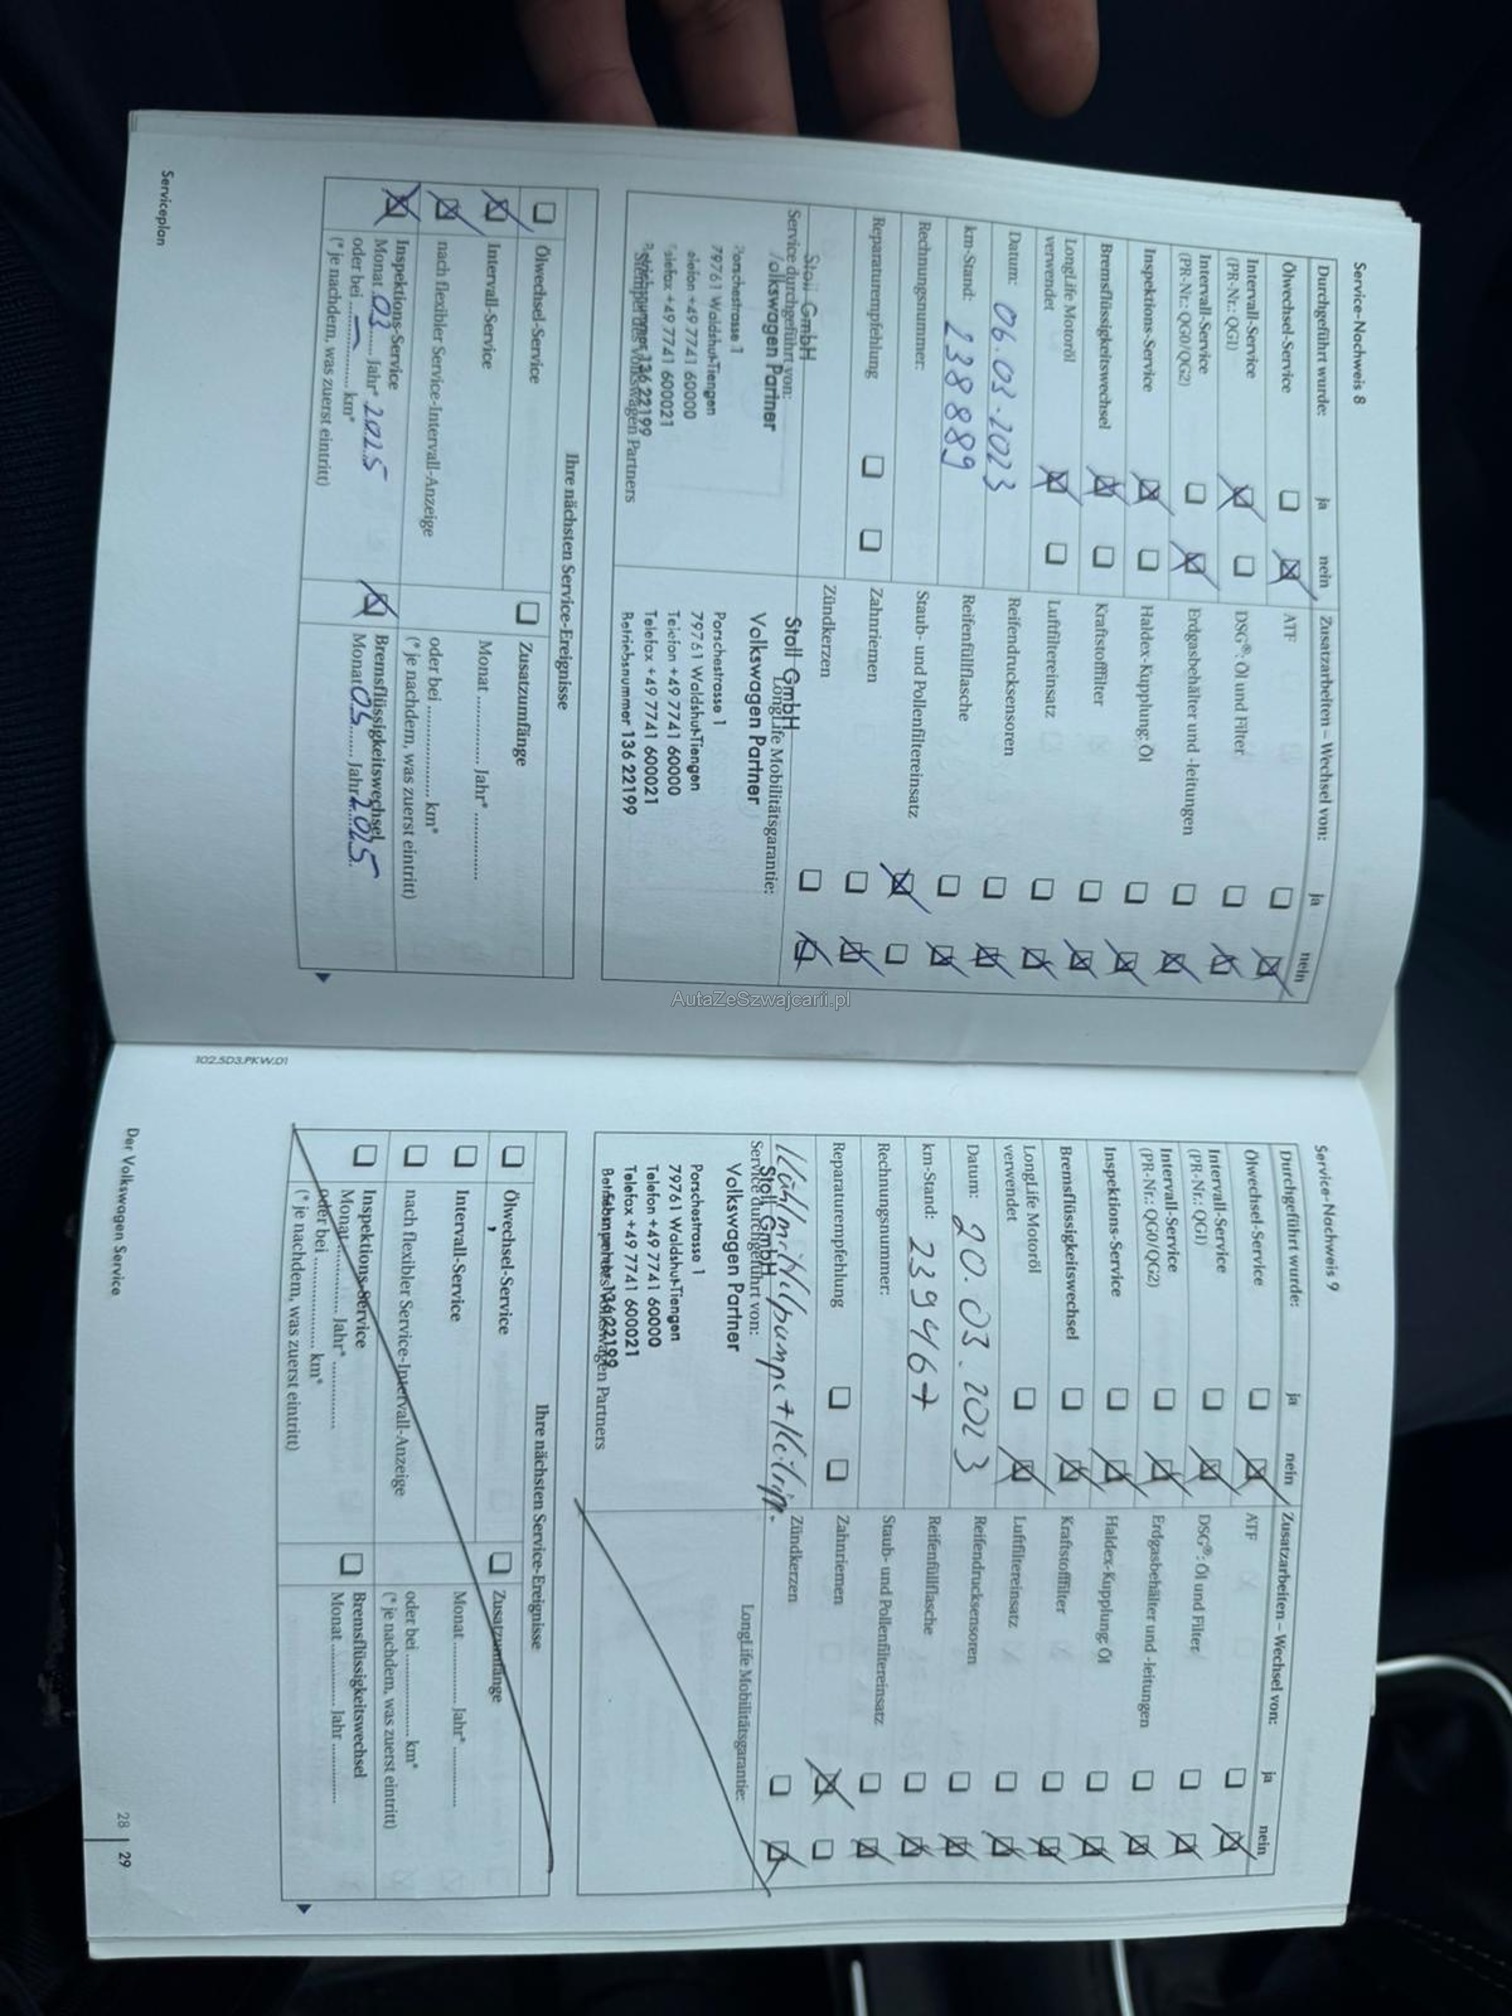 Service-Nachweis 8
Durchgeführt wurde: ja nein
Ölwechsel-Service
Intervall-Service
(PR-Nr.: QG1)
Intervall-Service
(PR-Nr.: QG0/QG2)
Inspektions-Service
Bremsflüssigkeitswechsel
LongLife Motoröl
verwendet
Datum: 06.03.2023
km-Stand: 238889
Rechnungsnummer:
Reparaturempfehlung
Zusatzarbeiten – Wechsel von: ja nein
ATF
DSG®: Öl und Filter
Erdgasbehälter und -leitungen
Haldex-Kupplung: Öl
Kraftstofffilter
Luftfiltereinsatz
Reifendrucksensoren
Reifenfüllflasche
Staub- und Pollenfiltereinsatz
Zahnriemen
Zündkerzen
Stoll GmbH
Service durchgeführt von:
Volkswagen Partner
Porschestrasse 1
79761 Waldshut-Tiengen
Telefon +49 7741 60000
Telefax +49 7741 600021
Betriebsnummer 136 22199
Stempel des Volkswagen Partners
Stoll GmbH
LongLife Mobilitätsgarantie:
Volkswagen Partner
Porschestrasse 1
79761 Waldshut-Tiengen
Telefon +49 7741 60000
Telefax +49 7741 600021
Betriebsnummer 136 22199
Ihre nächsten Service-Ereignisse
Ölwechsel-Service
Intervall-Service
nach flexibler Service-Intervall-Anzeige
Inspektions-Service
Monat 03 Jahr* 2025
oder bei — km*
(* je nachdem, was zuerst eintritt)
Zusatzumfänge
Monat ............ Jahr* ............
oder bei ................ km*
(* je nachdem, was zuerst eintritt)
Bremsflüssigkeitswechsel
Monat 03 Jahr 2025
Serviceplan
AutaZeSzwajcarii.pl
102.5D3.PKW.01
Service-Nachweis 9
Durchgeführt wurde: ja nein
Ölwechsel-Service
Intervall-Service
(PR-Nr.: QG1)
Intervall-Service
(PR-Nr.: QG0/QG2)
Inspektions-Service
Bremsflüssigkeitswechsel
LongLife Motoröl
verwendet
Datum: 20.03.2023
km-Stand: 239467
Rechnungsnummer:
Reparaturempfehlung
Zusatzarbeiten – Wechsel von: ja nein
ATF
DSG®: Öl und Filter
Erdgasbehälter und -leitungen
Haldex-Kupplung: Öl
Kraftstofffilter
Luftfiltereinsatz
Reifendrucksensoren
Reifenfüllflasche
Staub- und Pollenfiltereinsatz
Zahnriemen
Zündkerzen
Kühlmittelpumpe + Keilripp.
Stoll GmbH
Service durchgeführt von:
Volkswagen Partner
Porschestrasse 1
79761 Waldshut-Tiengen
Telefon +49 7741 60000
Telefax +49 7741 600021
Betriebsnummer 136 22199
Stempel des Volkswagen Partners
LongLife Mobilitätsgarantie:
Ihre nächsten Service-Ereignisse
Ölwechsel-Service
Intervall-Service
nach flexibler Service-Intervall-Anzeige
Inspektions-Service
Monat ............ Jahr* ............
oder bei ................ km*
(* je nachdem, was zuerst eintritt)
Zusatzumfänge
Monat ............ Jahr* ............
oder bei ................ km*
(* je nachdem, was zuerst eintritt)
Bremsflüssigkeitswechsel
Monat ............ Jahr ............
Der Volkswagen Service
28 | 29